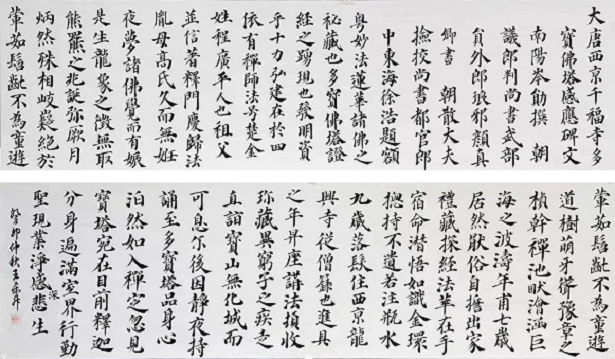 大唐西京千福寺多
寶佛塔感應碑文
南陽岑勛撰 朝
議郎判尚書武部
員外郎琅邪顏真
卿書 朝散大夫
撿挍尚書都官郎
中東海徐浩題額
粵妙法蓮華諸佛之
祕藏也多寶佛塔證
經之踴現也發明資
乎十力弘建在於四
依有禪師法号楚金
姓程廣平人也祖父
並信著釋門慶歸法
胤母高氏久而無妊
夜夢諸佛覺而有娠
是生龍象之徵無取
熊羆之兆誕弥厥月
炳然殊相岐嶷絕於
葷茹髫齔不為童遊
葷茹髫齔不為童遊
道樹萌牙聳豫章之
楨幹禪池畎澮涵巨
海之波濤年甫七歲
居然猒俗自誓出家
禮藏探經法華在手
宿命潛悟如識金環
揔持不遺若注瓶水
九歲落髮住西京龍
興寺從僧籙也進具
之年昇座講法頓收
珎藏異窮子之疾走
直詣寶山無化城而
可息尒後因静夜持
誦至多寶塔品身心
泊然如入禪定忽見
寶塔宛在目前釋迦
分身遍滿空界行勤
聖現業淨感悲生
深
癸卯仲秋王